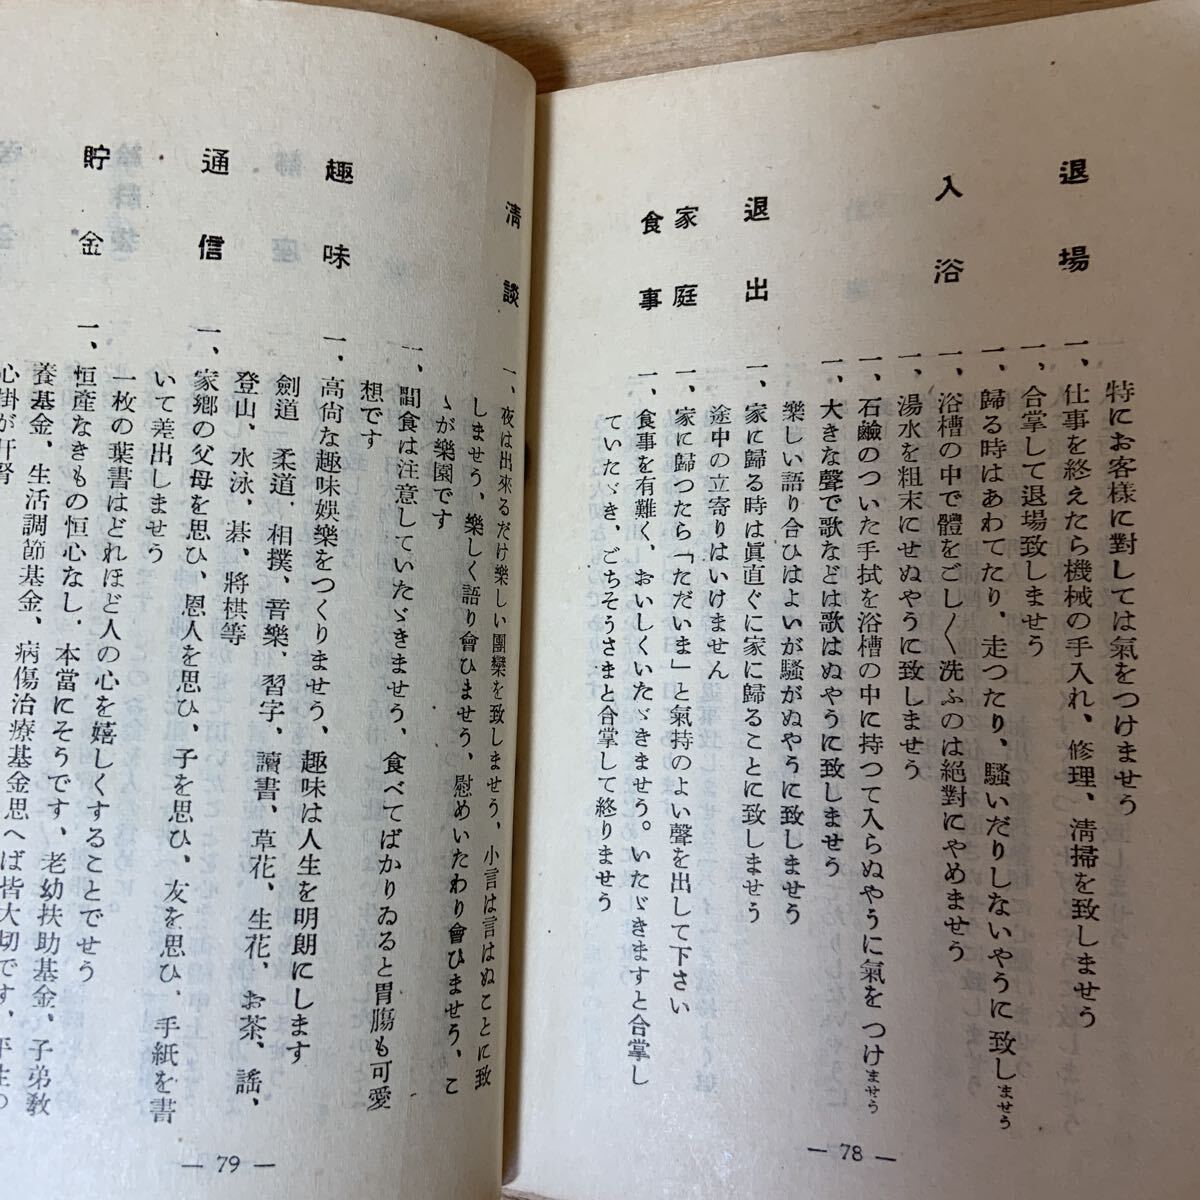 特にお客様に對しては氣をつけませう
退場
一、仕事を終えたら機械の手入れ、修理、淸掃を致しませう
一、合掌して退場致しませう
一、歸る時はあわてたり、走つたり、騷いだりしないやうに致しませう
入浴
一、浴槽の中で體をごし〱洗ふのは絕對にやめませう
一、湯水を粗末にせぬやうに致しませう
一、石鹼のついた手拭を浴槽の中に持つて入らぬやうに氣をつけませう
一、大きな聲で歌などは歌はぬやうに致しませう
樂しい語り合ひはよいが騷がぬやうに致しませう
退出
一、家に歸る時は眞直ぐに家に歸ることに致しませう
途中の立寄りはいけません
家庭
一、家に歸つたら「ただいま」と氣持のよい聲を出して下さい
食事
一、食事を有難く、おいしくいたゞきませう。いたゞきますと合掌し
ていたゞき、ごちそうさまと合掌して終りませう
— 78 —
淸談
一、夜は出來るだけ樂しい團欒を致しませう、小言は言はぬことに致
しませう、樂しく語り會ひませう、慰めいたわり會ひませう、こ
ゝが樂園です
一、間食は注意していたゞきませう、食べてばかりゐると胃膓も可愛
想です
趣味
一、高尙な趣味娛樂をつくりませう、趣味は人生を明朗にします
劍道 柔道、相撲、音樂、習字、讀書、草花、生花、お茶、謠、
登山、水泳、碁、將棋等
通信
一、家鄕の父母を思ひ、恩人を思ひ、子を思ひ、友を思ひ、手紙を書
いて差出しませう
一枚の葉書はどれほど人の心を嬉しくすることでせう
貯金
一、恒產なきもの恒心なし、本當にそうです、老幼扶助基金、子弟敎
養基金、生活調節基金、病傷治療基金思へば皆大切です、平生の
心掛が肝腎
— 79 —